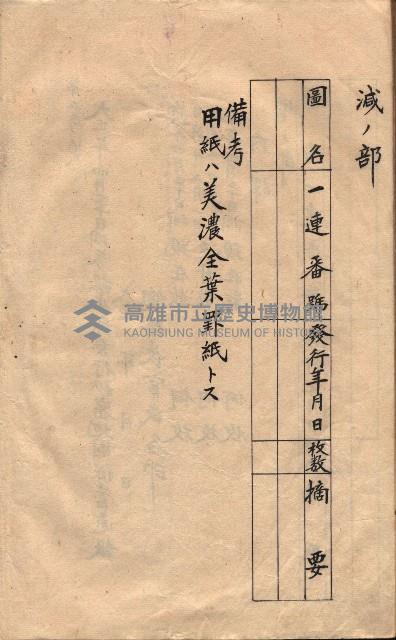 減ノ部
圖名
一連番號
發行年月日
枚數
摘要
備考
用紙ハ美濃全葉罫紙トス
高雄市立歷史博物館
KAOHSIUNG MUSEUM OF HISTORY